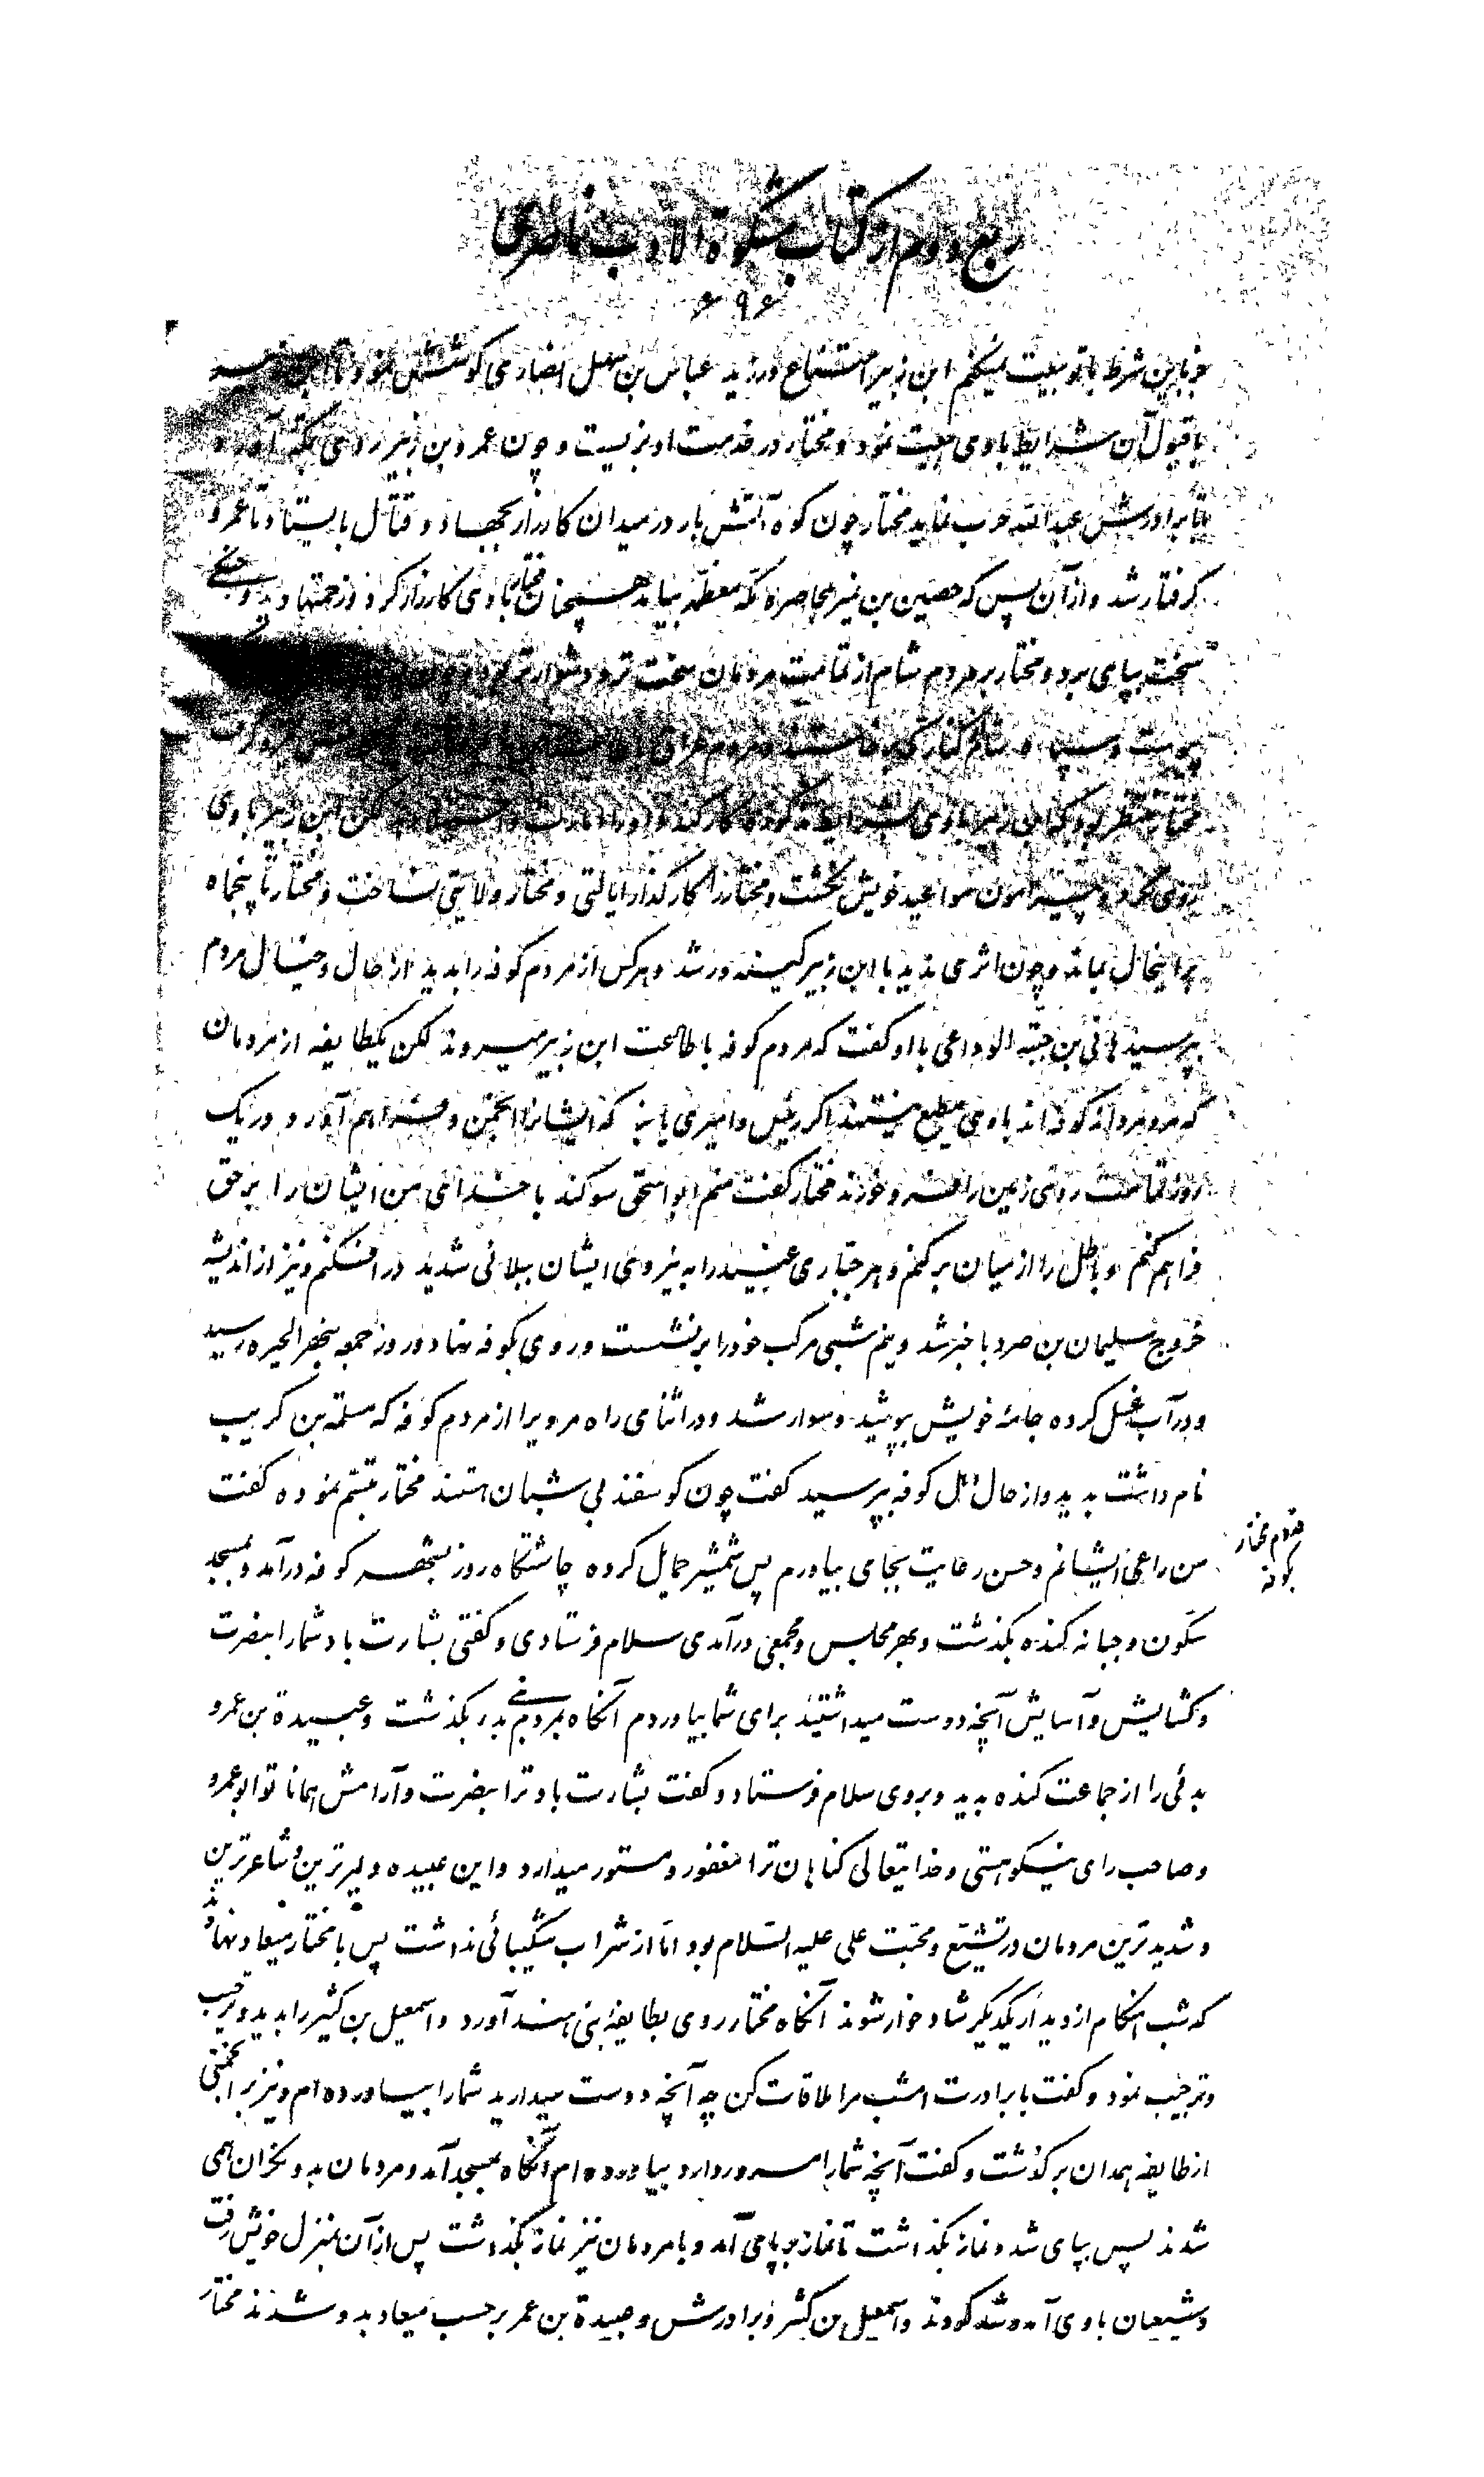 ربع دوم از کتاب مشکوة الادب ناصری
۶۹۶
جز باین شرط با تو بیعت نمیکنم ابن زبیر امتناع ورزید عباس بن سهل انصاری کوشش نمود تا ابن زبیر
با قبول آن شرایط با وی بیعت نمود و مختار در خدمت او بزیست و چون عمرو بن زبیر روی بمکه آورد
تا با برادرش عبدالله حرب نماید مختار چون کوه آتش بار در میدان کارزار بجهاد و قتال بایستاد تا عمرو
گرفتار شد و از آن پس که حصین بن نمیر بمحاصره مکه معظمه بیامد همچنان مختار با وی کارزار کرد و زحمتها دید و جنگی
سخت بپای برد و مختار بر مردم شام از تمامت مردمان سخت تر و دشوارتر بود
مختار منتظر بود که ابن زبیر با وی شرایط مذکوره کار کند لکن ابن زبیر با وی
روی نکرد و پیرامون مواعید خویش نگشت و مختار را کارگذار ایالتی و مختار ولایتی نساخت و مختار تا پنجماه
بر اینحال بماند و چون اثری ندید با ابن زبیر کینه ور شد و هر کس از مردم کوفه را بدید از حال و خیال مردم
بپرسید هانی بن حیة الوداعی با او گفت که مردم کوفه با طاعت ابن زبیر میروند لکن یکطایفه از مردمان
که مرد مردانه کوفه اند با وی مطیع نیستند اگر رئیس و امیری یابند که ایشانرا انجمن و فراهم آورد در یک
روز تمامت روی زمین را فرو خورند مختار گفت منم ابو اسحق سوگند با خدای من ایشان را بر حق
فراهم کنم و باطل را از میان برکنم و هر جباری عنید را به نیروی ایشان ببلائی شدید در افکنم و نیز از اندیشه
خروج سلیمان بن صرد با خبر شد و نیم شبی مرکب خود را بر نشست و روی بکوفه نهاد و روز جمعه بنهر الحیره رسید
و در آب غسل کرده جامهٔ خویش بپوشید و سوار شد و در اثنای راه مرویرا از مردم کوفه که سلمة بن کریب
نام داشت بدید و از حال اهل کوفه بپرسید گفت چون گوسفند بی شبان هستند مختار تبسم نموده گفت
من راعی ایشانم و حسن رعایت بجای بیاورم پس شمشیر حمایل کرده چاشتگاه روز بشهر کوفه درآمد و بمسجد
قدوم مختار
بکوفه
سکون و جبانه کنده بگذشت و بهر مجلس و مجمعی درآمدی سلام فرستادی و گفتی بشارت باد شما را بنصرت
و گشایش و آسایش آنچه دوست میداشتید برای شما بیاوردم آنگاه بمردم بنی بدء بگذشت و عبیدة بن عمرو
بدئی را از جماعت کنده بدید و بروی سلام فرستاد و گفت بشارت باد ترا بنصرت و آرامش همانا تو ابو عمرو
و صاحب رای نیکو هستی و خدایتعالی گناهان ترا مغفور و مستور میدارد و این عبیده دلیرترین و شاعرترین
و شدیدترین مردمان در تشیع و محبت علی علیه السلام بود اما از شراب شکیبائی نداشت پس با مختار میعاد نهادند
که شب هنگام از دیدار یکدیگر شادخوار شوند آنگاه مختار روی بطایفهٔ بنی هند آورد و اسمعیل بن کثیر را بدید و ترحیب
و ترجیب نمود و گفت با برادرت امشب مرا ملاقات کن چه آنچه دوست میدارید شما را بیاورده ام و نیز بر انجمنی
از طایفه همدان برگذشت و گفت آنچه شما را مسرور دارد بیاورده ام آنگاه بمسجد آمد و مردمان بدو نگران همی
شدند پس بپای شد و نماز بگذاشت تا نماز بر پای آمد و با مردمان نیز نماز بگذاشت پس از آن بمنزل خویش رفت
و شیعیان با وی آمد و شد گرفتند و اسمعیل بن کثیر و برادرش و عبیدة بن عمر بر حسب میعاد بدو شدند مختار